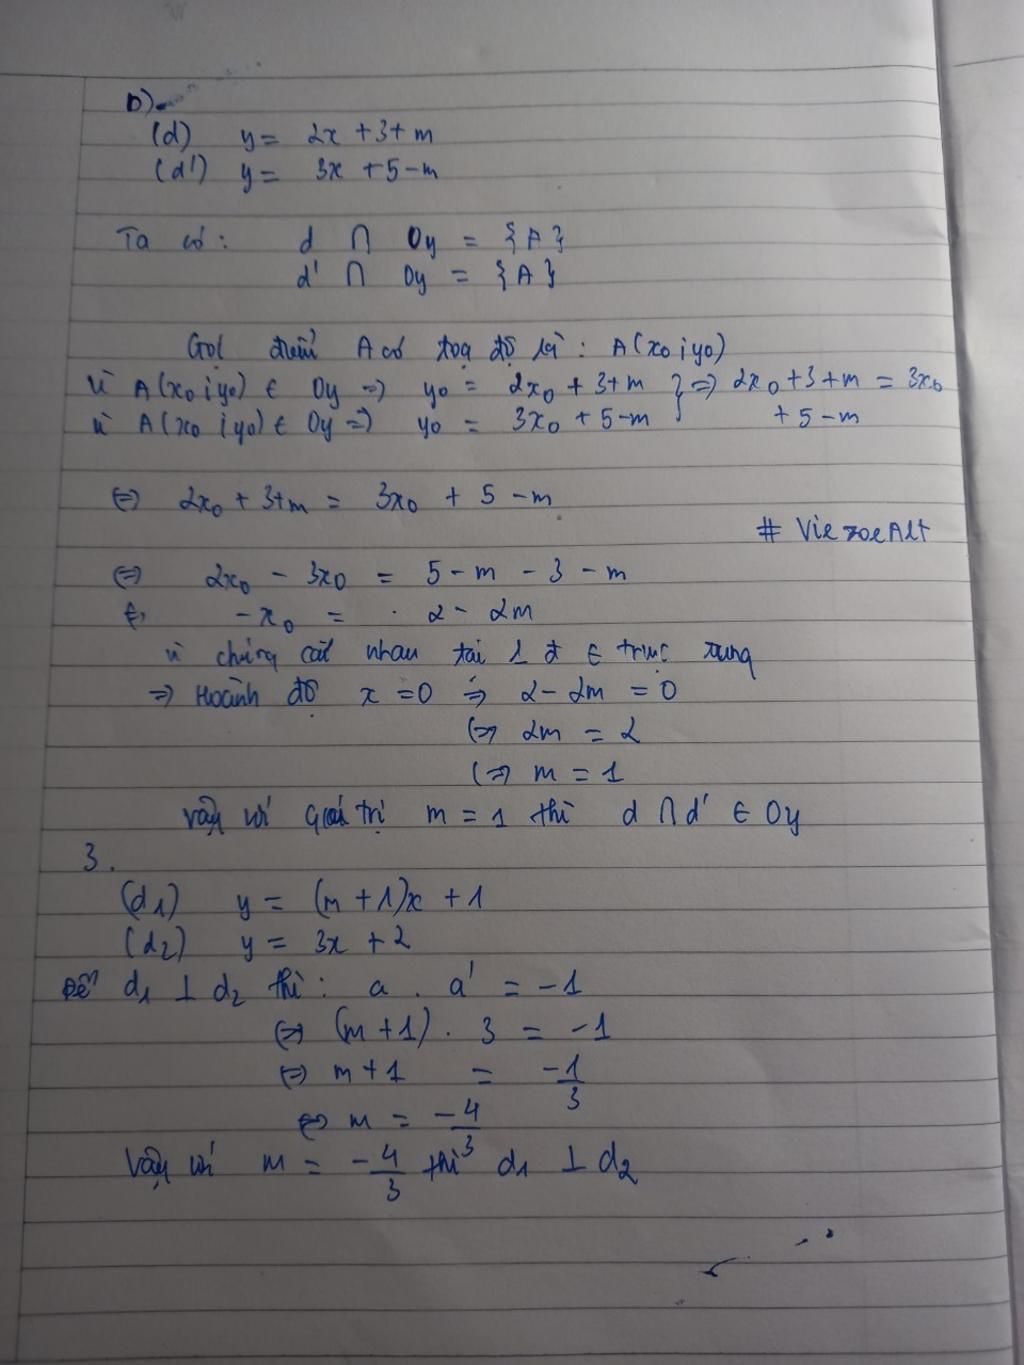 b)
(d) y = 2x + 3 + m
(d') y = 3x + 5 - m
Ta có: d ∩ Oy = {A}
d' ∩ Oy = {A}
Gọi điểm A có toạ độ là: A(x₀; y₀)
vì A(x₀; y₀) ∈ Oy => y₀ = 2x₀ + 3 + m } => 2x₀ + 3 + m = 3x₀
vì A(x₀; y₀) ∈ Oy => y₀ = 3x₀ + 5 - m + 5 - m
<=> 2x₀ + 3 + m = 3x₀ + 5 - m
# VietoeAlt
<=> 2x₀ - 3x₀ = 5 - m - 3 - m
<=> -x₀ = 2 - 2m
vì chúng cắt nhau tại 1 đ ∈ trục tung
=> Hoành độ x = 0 => 2 - 2m = 0
<=> 2m = 2
<=> m = 1
Vậy với giá trị m = 1 thì d ∩ d' ∈ Oy
3.
(d₁) y = (m + 1)x + 1
(d₂) y = 3x + 2
Để d₁ ⊥ d₂ thì: a . a' = -1
<=> (m + 1) . 3 = -1
<=> m + 1 = -1/3
<=> m = -4/3
Vậy với m = -4/3 thì d₁ ⊥ d₂